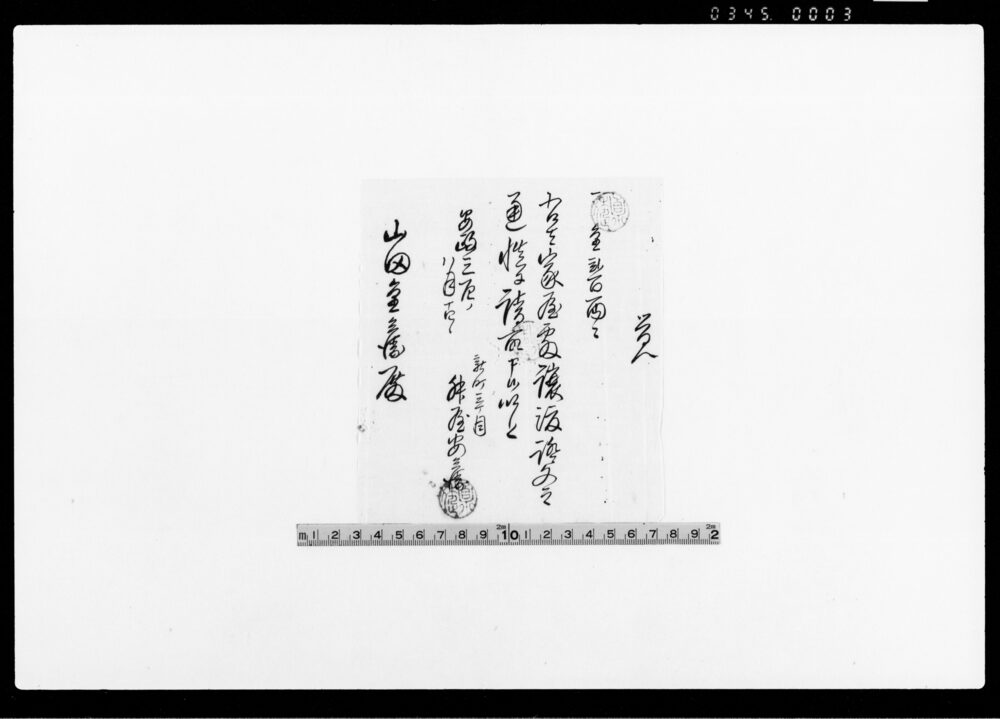 0345. 0003
覚
一 金弐百両也
右者家屋敷譲渡証文之
通慥ニ請取申候以上
安政三辰
八月十日
新町三丁目
屋安兵衛
山田金兵衛殿
m 1 2 3 4 5 6 7 8 9 10 1 2 3 4 5 6 7 8 9 2